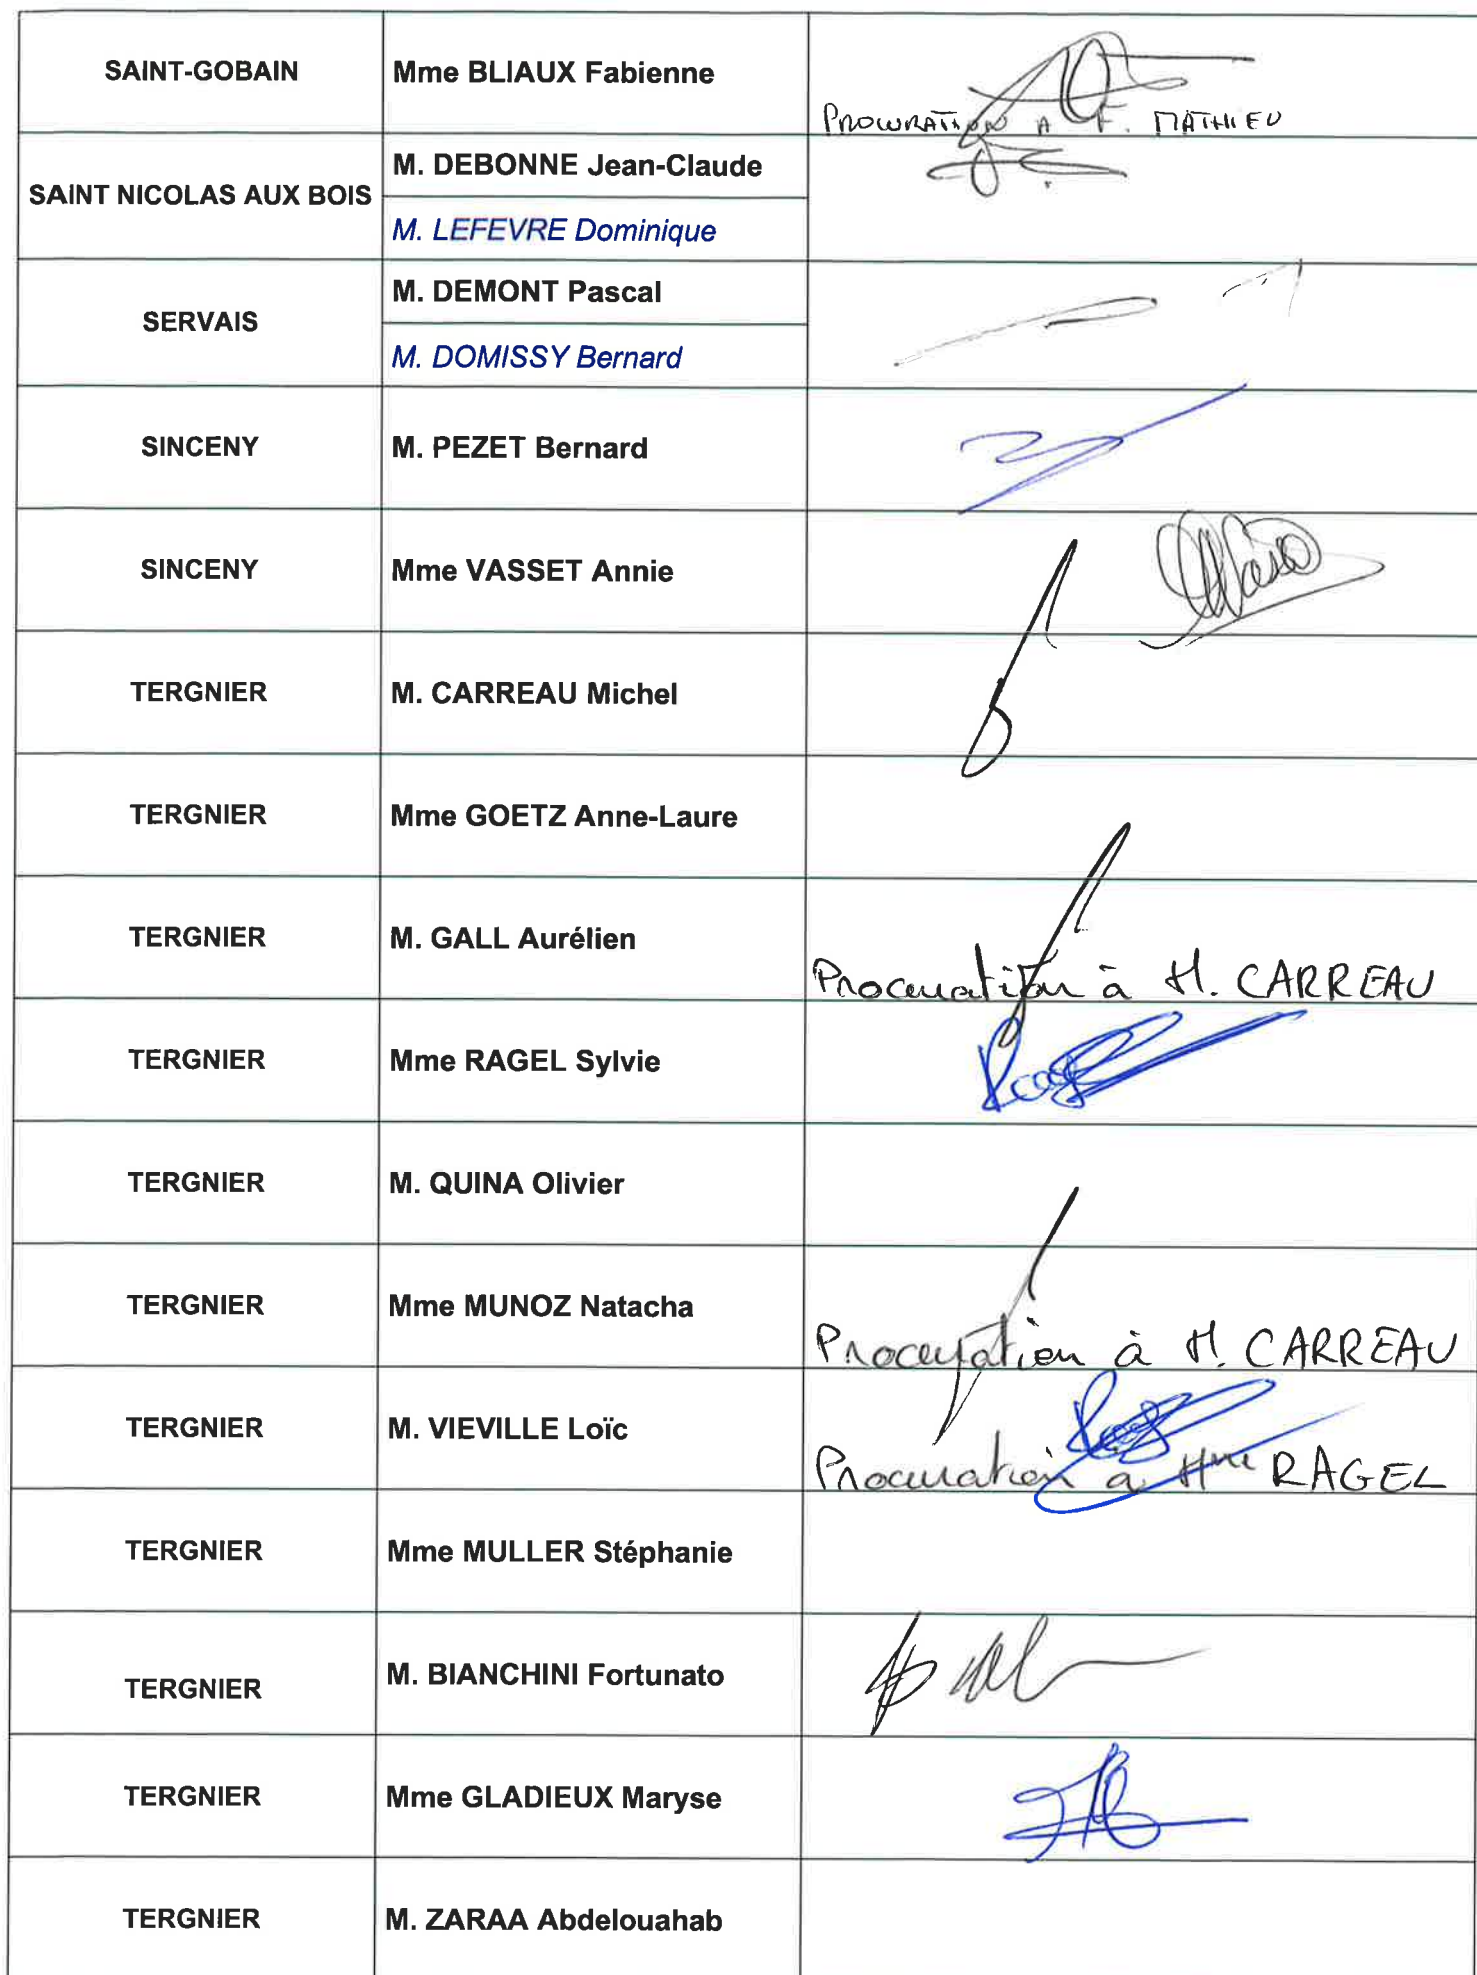 SAINT-GOBAIN
Mme BLIAUX Fabienne
PROCURATION A F. MATHIEU
SAINT NICOLAS AUX BOIS
M. DEBONNE Jean-Claude
M. LEFEVRE Dominique
SERVAIS
M. DEMONT Pascal
M. DOMISSY Bernard
SINCENY
M. PEZET Bernard
SINCENY
Mme VASSET Annie
TERGNIER
M. CARREAU Michel
TERGNIER
Mme GOETZ Anne-Laure
TERGNIER
M. GALL Aurélien
Procuration à M. CARREAU
TERGNIER
Mme RAGEL Sylvie
TERGNIER
M. QUINA Olivier
TERGNIER
Mme MUNOZ Natacha
Procuration à M. CARREAU
TERGNIER
M. VIEVILLE Loïc
Procuration a Mme RAGEL
TERGNIER
Mme MULLER Stéphanie
TERGNIER
M. BIANCHINI Fortunato
TERGNIER
Mme GLADIEUX Maryse
TERGNIER
M. ZARAA Abdelouahab